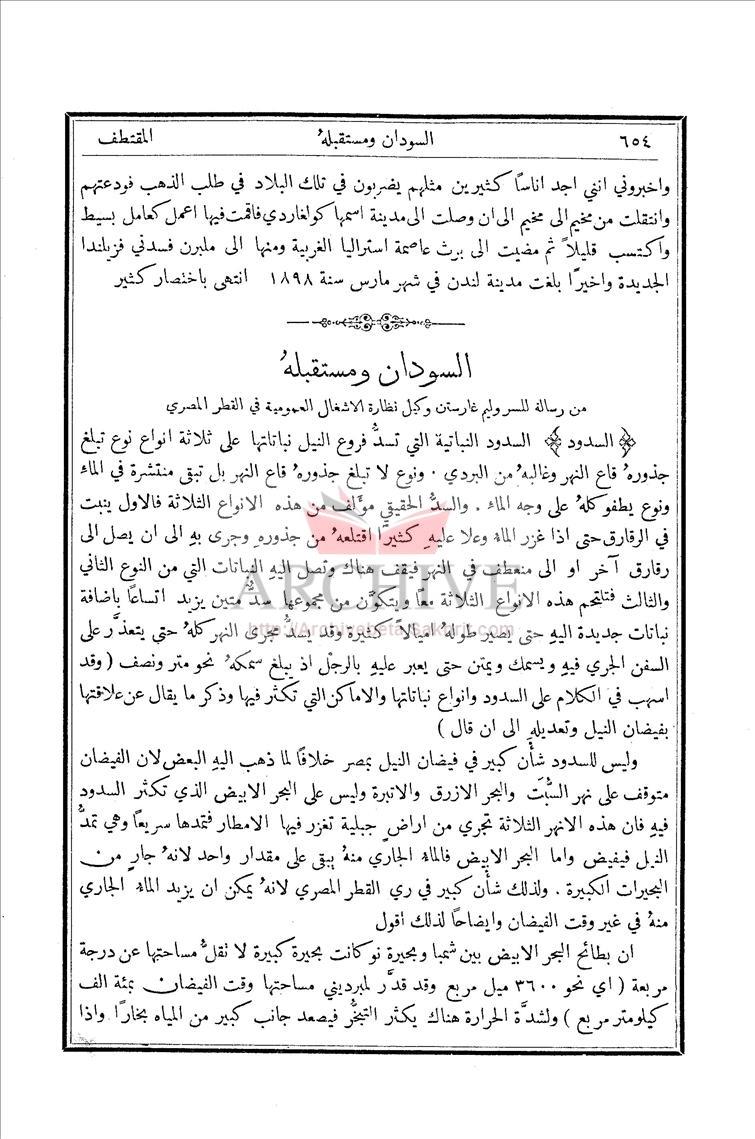 ٦٥٤ السودان ومستقبلهُ المقتطف
واخبروني انني اجد اناساً كثيرين مثلهم يضربون في تلك البلاد في طلب الذهب فودعتهم
وانتقلت من مخيم الى مخيم الى ان وصلت الى مدينة اسمها كولغاردي فاقمت فيها اعمل كعامل بسيط
واكتسب قليلاً ثم مضيت الى برث عاصمة استراليا الغربية ومنها الى ملبرن فسدني فزيلندا
الجديدة واخيرًا بلغت مدينة لندن في شهر مارس سنة ١٨٩٨ انتهى باختصار كثير
السودان ومستقبلهُ
من رسالة للسر وليم غارستن وكيل نظارة الاشغال العمومية في القطر المصري
﴿ السدود ﴾ السدود النباتية التي تسدُّ فروع النيل نباتاتها على ثلاثة انواع نوع تبلغ
جذورهُ قاع النهر وغالبهُ من البردي . ونوع لا تبلغ جذورهُ قاع النهر بل تبقى منتشرة في الماء
ونوع يطفو كلهُ على وجه الماء . والسدُّ الحقيقي مؤَلف من هذه الانواع الثلاثة فالاول ينبت
في الرقارق حتى اذا غزر الماء وعلا عليهِ كثيرًا اقتلعهُ من جذورهِ وجرى بهِ الى ان يصل الى
رقارق آخر او الى منعطف في النهر فيقف هناك وتصل اليهِ النباتات التي من النوع الثاني
والثالث فتلتحم هذه الانواع الثلاثة معاً ويتكوَّن من مجموعها سدٌّ متين يزيد اتساعًا باضافة
نباتات جديدة اليهِ حتى يصير طولهُ اميالاً كثيرة وقد يسدُّ مجرى النهر كلهُ حتى يتعذَّر على
السفن الجري فيهِ ويسمك ويمتن حتى يعبر عليهِ بالرجل اذ يبلغ سمكهُ نحو متر ونصف ( وقد
اسهب في الكلام على السدود وانواع نباتاتها والاماكن التي تكثر فيها وذكر ما يقال عن علاقتها
بفيضان النيل وتعديلهِ الى ان قال )
وليس للسدود شأن كبير في فيضان النيل بمصر خلافًا لما ذهب اليهِ البعض لان الفيضان
متوقف على نهر السُّبَت والبحر الازرق والاتبرة وليس على البحر الابيض الذي تكثر السدود
فيهِ فان هذه الانهر الثلاثة تجري من اراضٍ جبلية تغزر فيها الامطار فتمدها سريعًا وهي تمدُّ
النيل فيفيض واما البحر الابيض فالماء الجاري منهُ يبقى على مقدار واحد لانهُ جارٍ من
البحيرات الكبيرة . ولذلك شأن كبير في ري القطر المصري لانهُ يمكن ان يزيد الماء الجاري
منهُ في غير وقت الفيضان وايضاحًا لذلك اقول
ان بطائح البحر الابيض بين شمبا وبحيرة نو كانت بحيرة كبيرة لا تقلُّ مساحتها عن درجة
مربعة ( اي نحو ٣٦٠٠ ميل مربع وقد قدَّر لمبرديني مساحتها وقت الفيضان بمئة الف
كيلومتر مربع ) ولشدَّة الحرارة هناك يكثر التبخُّر فيصعد جانب كبير من المياه بخارًا واذا
ARCHIVE
http://Archivebeta.Sakhrit.com